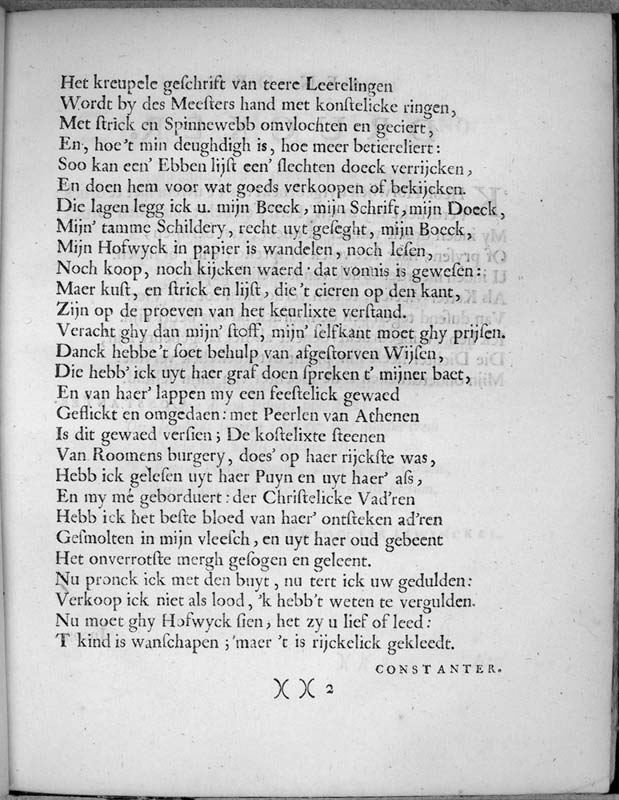 Het kreupele geſchrift van teere Leerelingen
Wordt by des Meeſters hand met konſtelicke ringen,
Met ſtrick en Spinnewebb omvlochten en geciert,
En, hoe't min deughdigh is, hoe meer betiereliert:
Soo kan een' Ebben lijſt een' ſlechten doeck verrijcken,
En doen hem voor wat goeds verkoopen of bekijcken.
Die lagen legg ick u. mijn Beeck, mijn Schrift, mijn Doeck,
Mijn' tamme Schildery, recht uyt geſeght, mijn Boeck,
Mijn Hofwyck in papier is wandelen, noch leſen,
Noch koop, noch kijcken waerd: dat vonnis is geweſen:
Maer kuſt, en ſtrick en lijſt, die 't cieren op den kant,
Zijn op de proeven van het keurlixte verſtand.
Veracht ghy dan mijn' ſtoff, mijn' ſelfkant moet ghy prijſen.
Danck hebbe't ſoet behulp van afgeſtorven Wijſen,
Die hebb' ick uyt haer graf doen ſpreken t' mijner baet,
En van haer' lappen my een feeſtelick gewaed
Geflickt en omgedaen: met Peerlen van Athenen
Is dit gewaed verſien; De koſtelixte ſteenen
Van Roomens burgery, does' op haer rijckſte was,
Hebb ick geleſen uyt haer Puyn en uyt haer' aſs,
En my mé geborduert: der Chriſtelicke Vad'ren
Hebb ick het beſte bloed van haer' ontſteken ad'ren
Geſmolten in mijn vleeſch, en uyt haer oud gebeent
Het onverrotſte mergh geſogen en geleent.
Nu pronck ick met den buyt, nu tert ick uw gedulden:
Verkoop ick niet als lood, 'k hebb't weten te vergulden.
Nu moet ghy Hofwyck ſien, het zy u lief of leed:
T kind is wanſchapen; 'maer 't is rijckelick gekleedt.
CONSTANTER.
)( )( 2